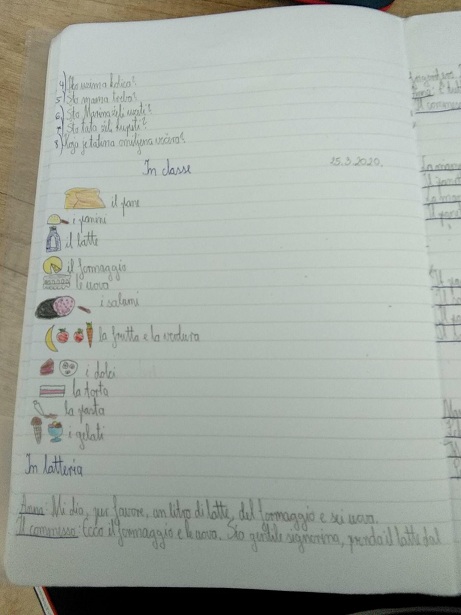 4) Što uzima kolica?
5) Što mama treba?
6) Što Marina želi uzeti?
7) Što tata želi kupiti?
8) Koja je tatina omiljena večera?
In classe 25.3.2020.
il pane
i panini
il latte
il formaggio
le uova
i salami
la frutta e la verdura
i dolci
la torta
la pasta
i gelati
In latteria
Anna: Mi dia, per favore, un litro di latte, del formaggio e sei uova.
Il commesso: Ecco il formaggio e le uova. Sia gentile signorina, prenda il latte dal